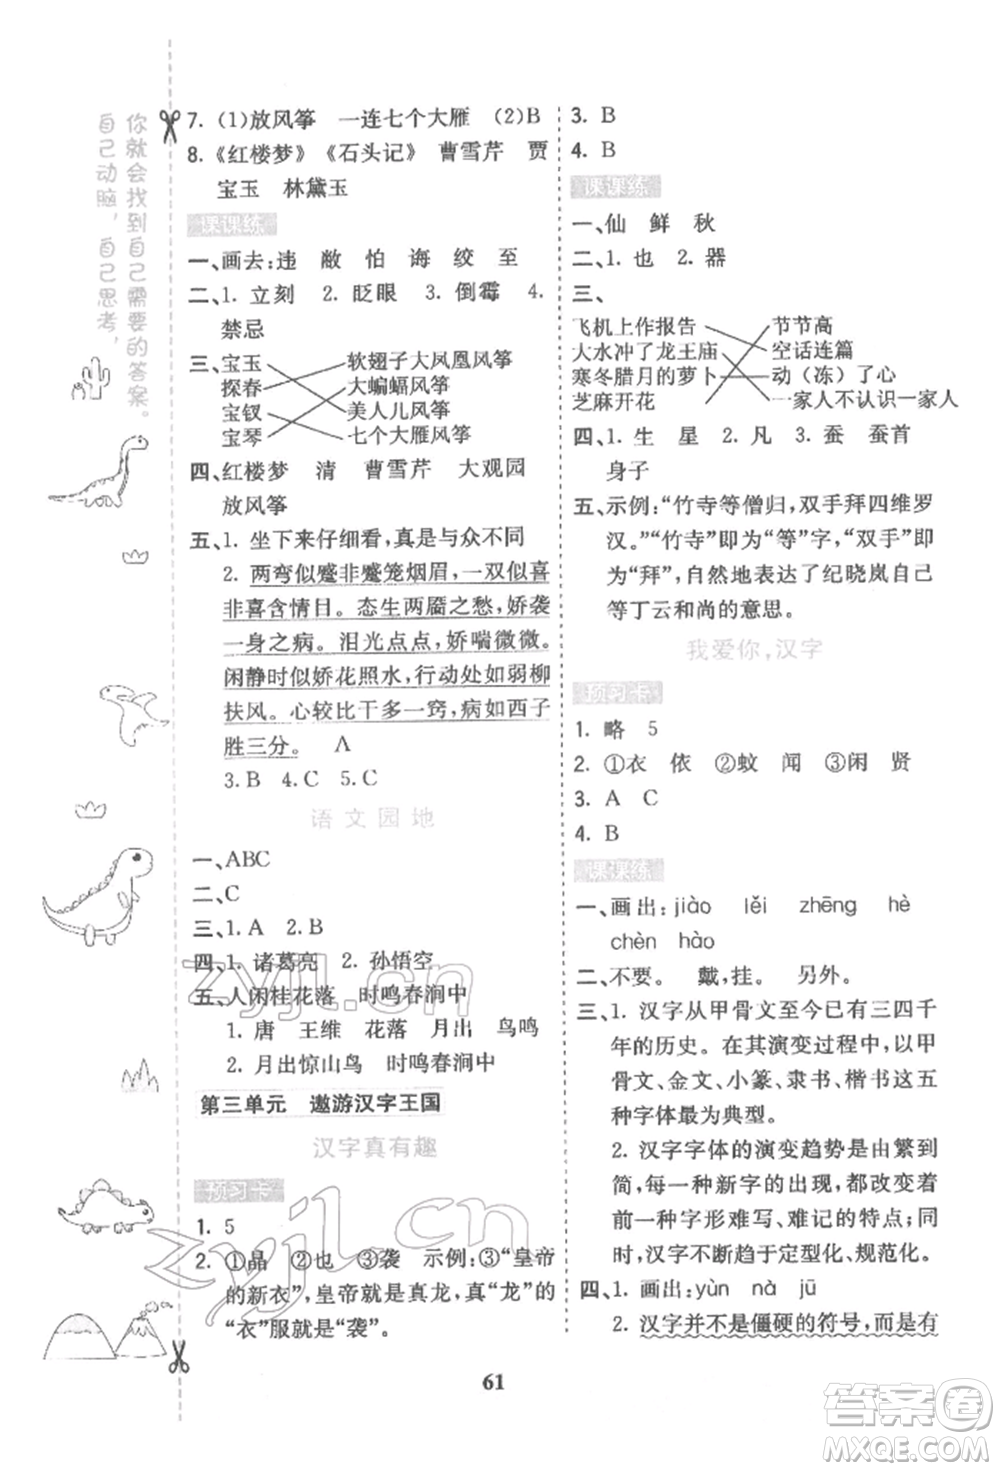 你就会找到自己需要的答案。
自己动脑，自己思考，
7. (1)放风筝 一连七个大雁 (2)B
8.《红楼梦》《石头记》 曹雪芹 贾
宝玉 林黛玉
课课练
一、画去:违 敝 怕 诲 绞 至
二、1. 立刻 2. 眨眼 3. 倒霉 4.
禁忌
三、宝玉 软翅子大凤凰风筝
探春 大蝙蝠风筝
宝钗 美人儿风筝
宝琴 七个大雁风筝
四、红楼梦 清 曹雪芹 大观园
放风筝
五、1. 坐下来仔细看，真有点与众不同
2. 两弯似蹙非蹙笼烟眉，一双似喜
非喜含情目。态生两靥之愁，娇袭
一身之病。泪光点点，娇喘微微。
闲静时似娇花照水，行动处如弱柳
扶风。心较比干多一窍，病如西子
胜三分。 A
3. B 4. C 5. C
语文园地
一、ABC
二、C
三、1. A 2. B
四、1. 诸葛亮 2. 孙悟空
五、人闲桂花落 时鸣春涧中
1. 唐 王维 花落 月出 鸟鸣
2. 月出惊山鸟 时鸣春涧中
第三单元 遨游汉字王国
汉字真有趣
预习卡
1. 5
2. ①晶 ②也 ③袭 示例:③“皇帝
的新衣”，皇帝就是真龙，真“龙”的
“衣”服就是“袭”。
3. B
4. B
课课练
一、仙 鲜 秋
二、1. 也 2. 器
三、
飞机上作报告 节节高
大水冲了龙王庙 空话连篇
寒冬腊月的萝卜 动（冻）了心
芝麻开花 一家人不认识一家人
四、1. 生 星 2. 凡 3. 蚕 蚕首
身子
五、示例:“竹寺等僧归，双手拜四维罗
汉。”“竹寺”即为“等”字，“双手”即
为“拜”，自然地表达了纪晓岚自己
等丁云和尚的意思。
我爱你，汉字
预习卡
1. 略 5
2. ①衣 依 ②蚊 闻 ③闲 贤
3. A C
4. B
课课练
一、画出:jiào lěi zhēng hè
chèn hào
二、不要。 戴，挂。 另外。
三、1. 汉字从甲骨文至今已有三四千
年的历史。在其演变过程中，以甲
骨文、金文、小篆、隶书、楷书这五
种字体最为典型。
2. 汉字字体的演变趋势是由繁到
简，每一种新字的出现，都改变了
前一种字形难写、难记的特点；同
时，汉字不断趋于定型化、规范化。
四、1. 画出:yùn nà jū
2. 汉字并不是僵硬的符号，而是有
61
zyjl.cn
zyjl.cn
答案圈
MXQE.COM